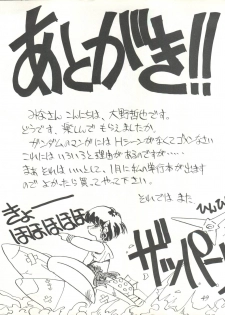 あとがき!!
みなさん こんにちは、大野哲也です。
どうです、楽しんで もらえましたか。
ガンダムマンガには Hシーンがなくてゴメンなさい
これには いろいろと理由があるのですが…
まぁ それはいいとして 1月に私の単行本が出ます
ので よかったら買ってやって下さい。
それでは また
きょー
ほほほほほ
ザッパーン